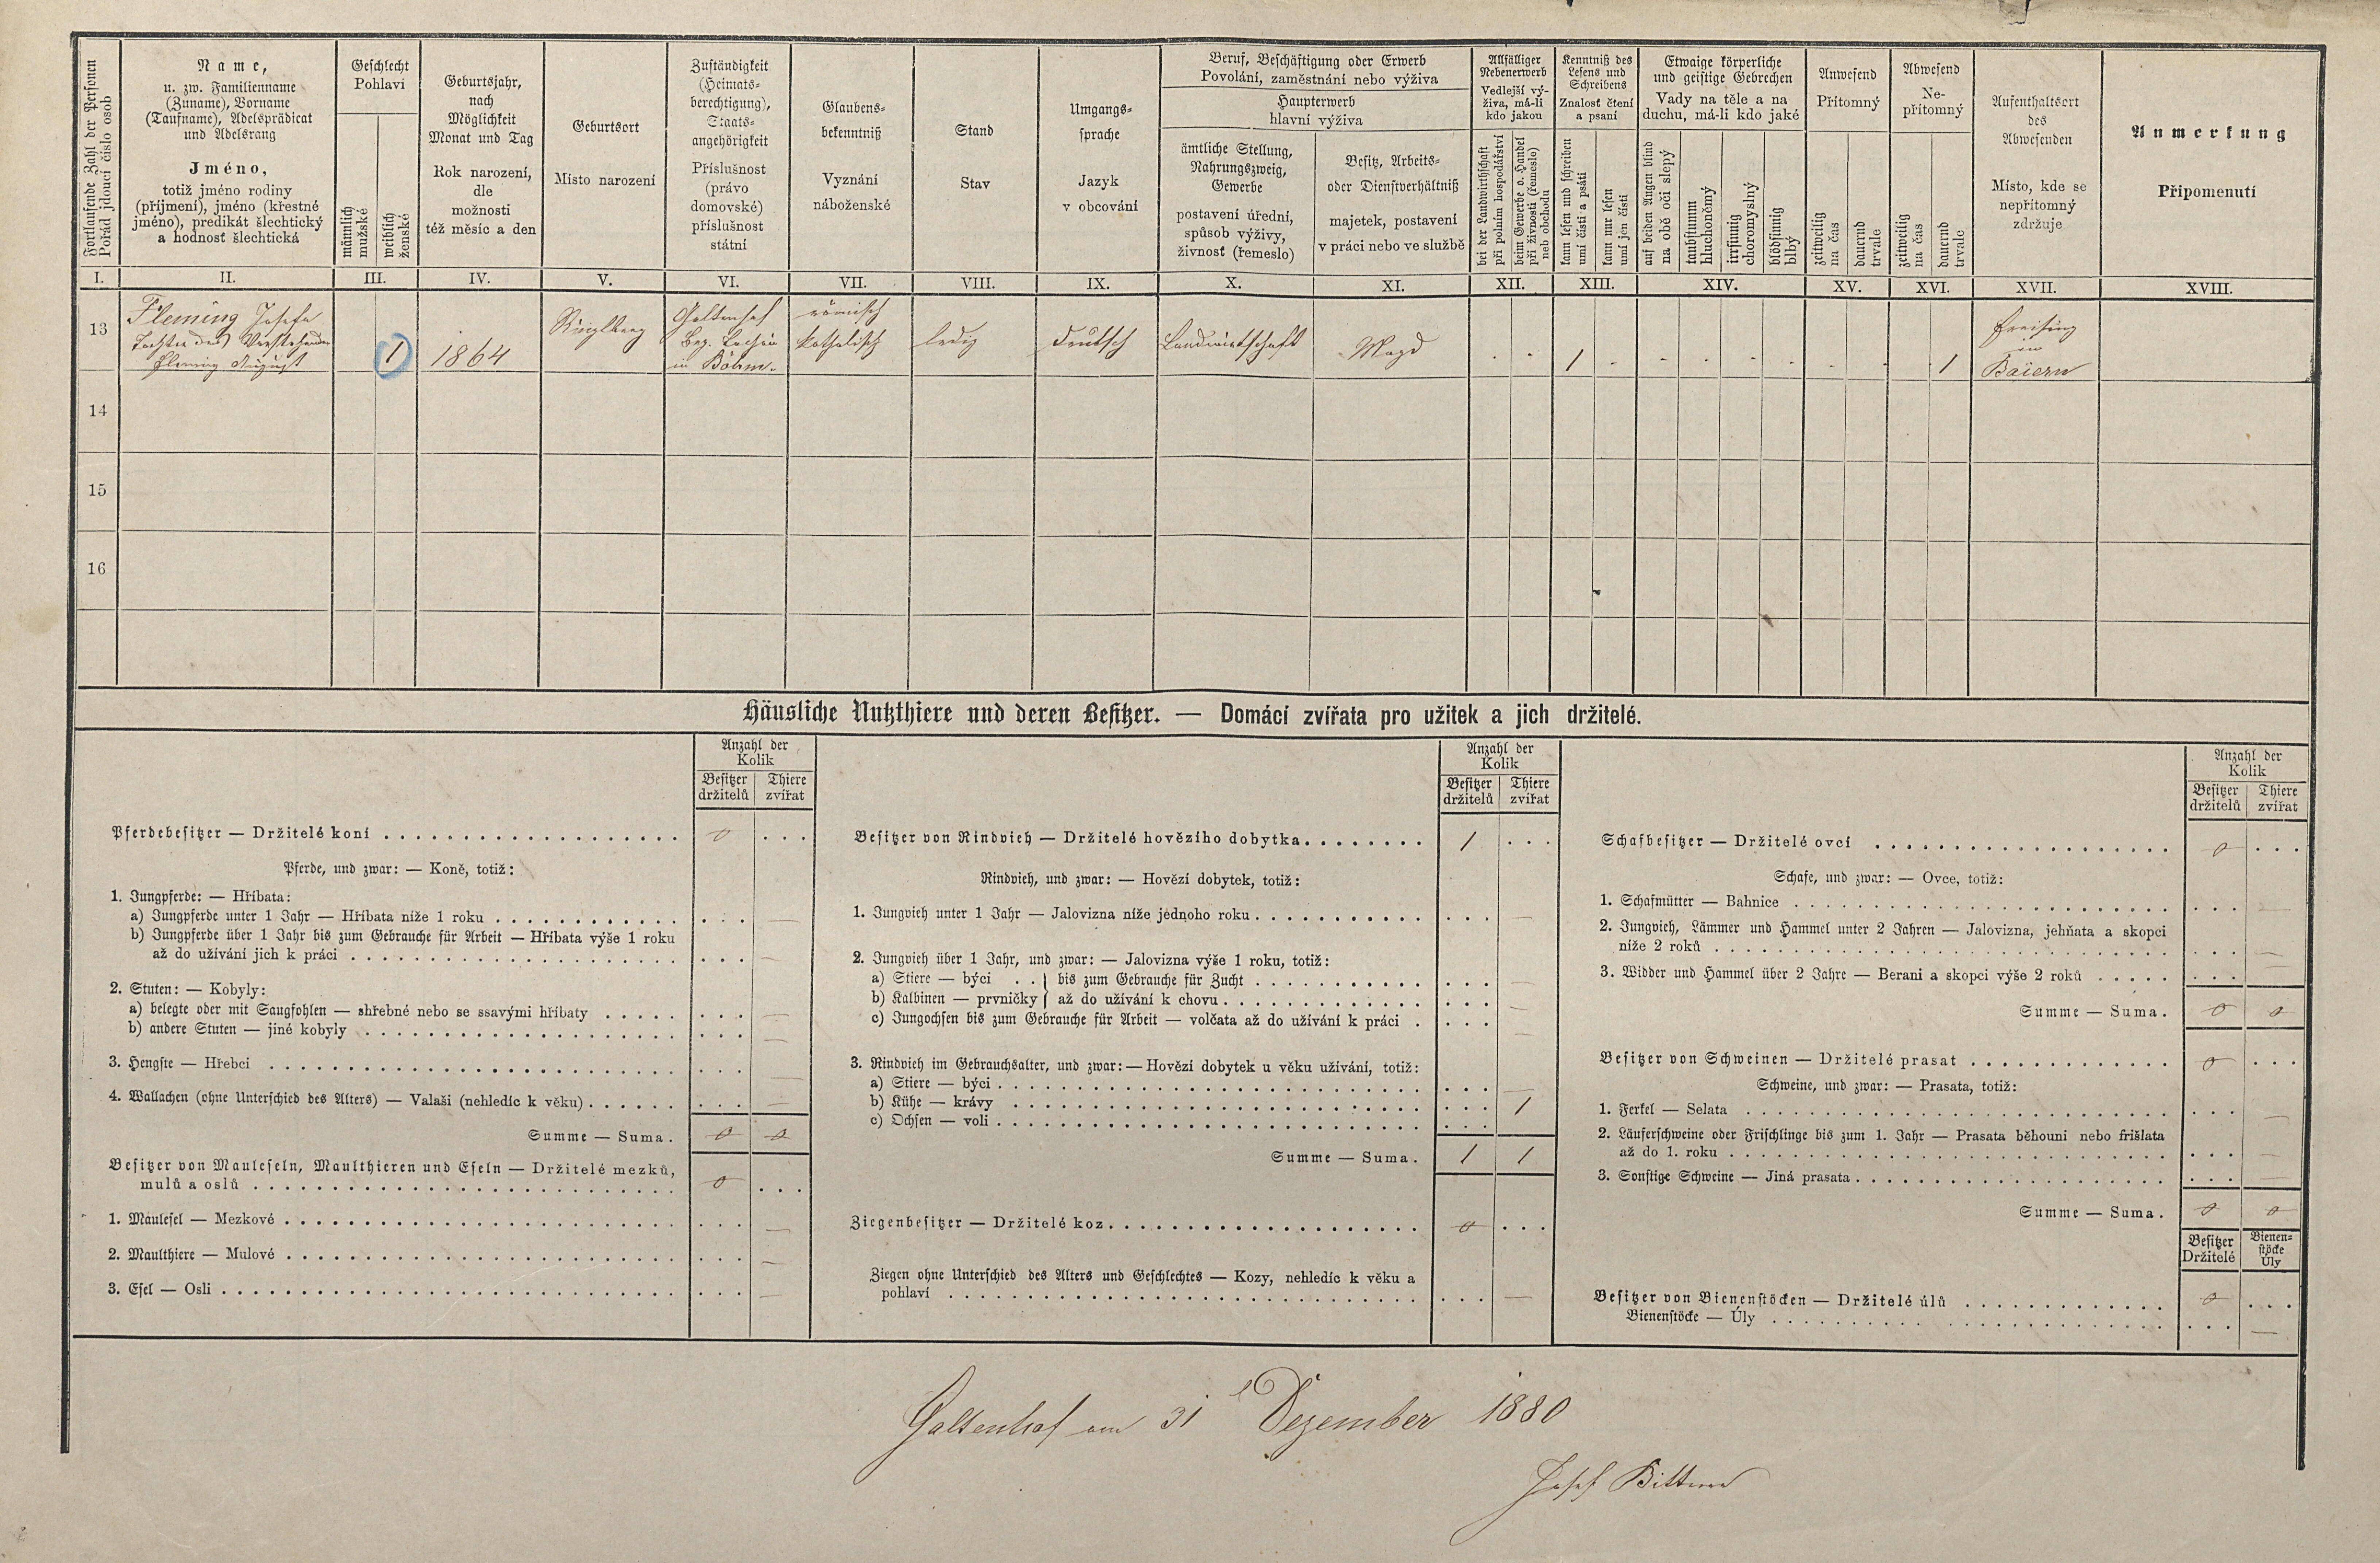 Fortlaufende Zahl der Personen
Pořád jdoucí číslo osob
Name,
u. zw. Familienname
(Zuname), Vorname
(Taufname), Adelsprädicat
und Adelsrang
Jméno,
totiž jméno rodiny
(příjmení), jméno (křestné
jméno), predikát šlechtický
a hodnosť šlechtická
Geschlecht
Pohlaví
männlich
mužské
weiblich
ženské
Geburtsjahr,
nach
Möglichkeit
Monat und Tag
Rok narození,
dle
možnosti
též měsíc a den
Geburtsort
Místo narození
Zuständigkeit
(Heimats-
berechtigung),
Staats-
angehörigkeit
Příslušnost
(právo
domovské)
příslušnost
státní
Glaubens-
bekenntniß
Vyznání
náboženské
Stand
Stav
Umgangs-
sprache
Jazyk
v obcování
Beruf, Beschäftigung oder Erwerb
Povolání, zaměstnání nebo výživa
Haupterwerb
hlavní výživa
ämtliche Stellung,
Nahrungszweig,
Gewerbe
postavení úřední,
spůsob výživy,
živnosť (řemeslo)
Besitz, Arbeits-
oder Dienstverhältniß
majetek, postavení
v práci nebo ve službě
Allfälliger
Nebenerwerb
Vedlejší vý-
živa, má-li
kdo jakou
bei der Landwirthschaft
při polním hospodářství
beim Gewerbe o. Handel
při živnosti (řemeslo)
neb obchodu
Kenntniß des
Lesens und
Schreibens
Znalosť čtení
a psaní
kann lesen und schreiben
umí čísti a psáti
kann nur lesen
umí jen čísti
Etwaige körperliche
und geistige Gebrechen
Vady na těle a na
duchu, má-li kdo jaké
auf beiden Augen blind
na obě oči slepý
taubstumm
hluchoněmý
irrsinnig
choromyslný
blödsinnig
blbý
Anwesend
Přítomný
zeitweilig
na čas
dauernd
trvale
Abwesend
Ne-
přítomný
zeitweilig
na čas
dauernd
trvale
Aufenthaltsort
des
Abwesenden
Místo, kde se
nepřítomný
zdržuje
Anmerkung
Připomenutí
I. II. III. IV. V. VI. VII. VIII. IX. X. XI. XII. XIII. XIV. XV. XVI. XVII. XVIII.
13
Fleming Josefa
Tochter des
Fleming August
1
1864
Ringlberg
Galtenhof
Bez. Tachau
in Böhm.
römisch
katholisch
ledig
deutsch
Landwirtschaft
Magd
. . 1 - - - - - - - - 1
Freising
in
Baiern
14
15
16
Häusliche Nutzthiere und deren Besitzer. — Domácí zvířata pro užitek a jich držitelé.
Anzahl der
Kolik
Besitzer Thiere
držitelů zvířat
Pferdebesitzer — Držitelé koní . . . 0 . . .
Pferde, und zwar: — Koně, totiž:
1. Jungpferde: — Hříbata:
a) Jungpferde unter 1 Jahr — Hříbata níže 1 roku . . . —
b) Jungpferde über 1 Jahr bis zum Gebrauche für Arbeit — Hříbata výše 1 roku
až do užívání jich k práci . . . —
2. Stuten: — Kobyly:
a) belegte oder mit Saugfohlen — shřebné nebo se ssavými hříbaty . . . —
b) andere Stuten — jiné kobyly . . . —
3. Hengste — Hřebci . . . —
4. Wallachen (ohne Unterschied des Alters) — Valaši (nehledíc k věku) . . . —
Summe — Suma. 0 0
Besitzer von Mauleseln, Maulthieren und Eseln — Držitelé mezků,
mulů a oslů . . . 0 . . .
1. Maulesel — Mezkové . . . —
2. Maulthiere — Mulové . . . —
3. Esel — Osli . . . —
Anzahl der
Kolik
Besitzer Thiere
držitelů zvířat
Besitzer von Rindvieh — Držitelé hovězího dobytka . . . 1 . . .
Rindvieh, und zwar: — Hovězí dobytek, totiž:
1. Jungvieh unter 1 Jahr — Jalovizna níže jednoho roku . . . —
2. Jungvieh über 1 Jahr, und zwar: — Jalovizna výše 1 roku, totiž:
a) Stiere — býci . . } bis zum Gebrauche für Zucht . . . —
b) Kalbinen — prvničky } až do užívání k chovu . . . —
c) Jungochsen bis zum Gebrauche für Arbeit — volčata až do užívání k práci . . . —
3. Rindvieh im Gebrauchsalter, und zwar: — Hovězí dobytek u věku užívání, totiž:
a) Stiere — býci . . . —
b) Kühe — krávy . . . 1
c) Ochsen — voli . . .
Summe — Suma. 1 1
Ziegenbesitzer — Držitelé koz . . . 0 . . .
Ziegen ohne Unterschied des Alters und Geschlechtes — Kozy, nehledíc k věku a
pohlaví . . . —
Anzahl der
Kolik
Besitzer Thiere
držitelů zvířat
Schafbesitzer — Držitelé ovcí . . . 0 . . .
Schafe, und zwar: — Ovce, totiž:
1. Schafmütter — Bahnice . . . —
2. Jungvieh, Lämmer und Hammel unter 2 Jahren — Jalovizna, jehňata a skopci
níže 2 roků . . . —
3. Widder und Hammel über 2 Jahre — Berani a skopci výše 2 roků . . . —
Summe — Suma. 0 0
Besitzer von Schweinen — Držitelé prasat . . . 0 . . .
Schweine, und zwar: — Prasata, totiž:
1. Ferkel — Selata . . . —
2. Läuferschweine oder Frischlinge bis zum 1. Jahr — Prasata běhouni nebo frišlata
až do 1. roku . . . —
3. Sonstige Schweine — Jiná prasata . . . —
Summe — Suma. 0 0
Besitzer Bienen-
Držitelé stöcke
Úly
Besitzer von Bienenstöcken — Držitelé úlů . . . 0 . . .
Bienenstöcke — Úly . . . —
Galtenhof am 31 Dezember 1880
Josef Bittner